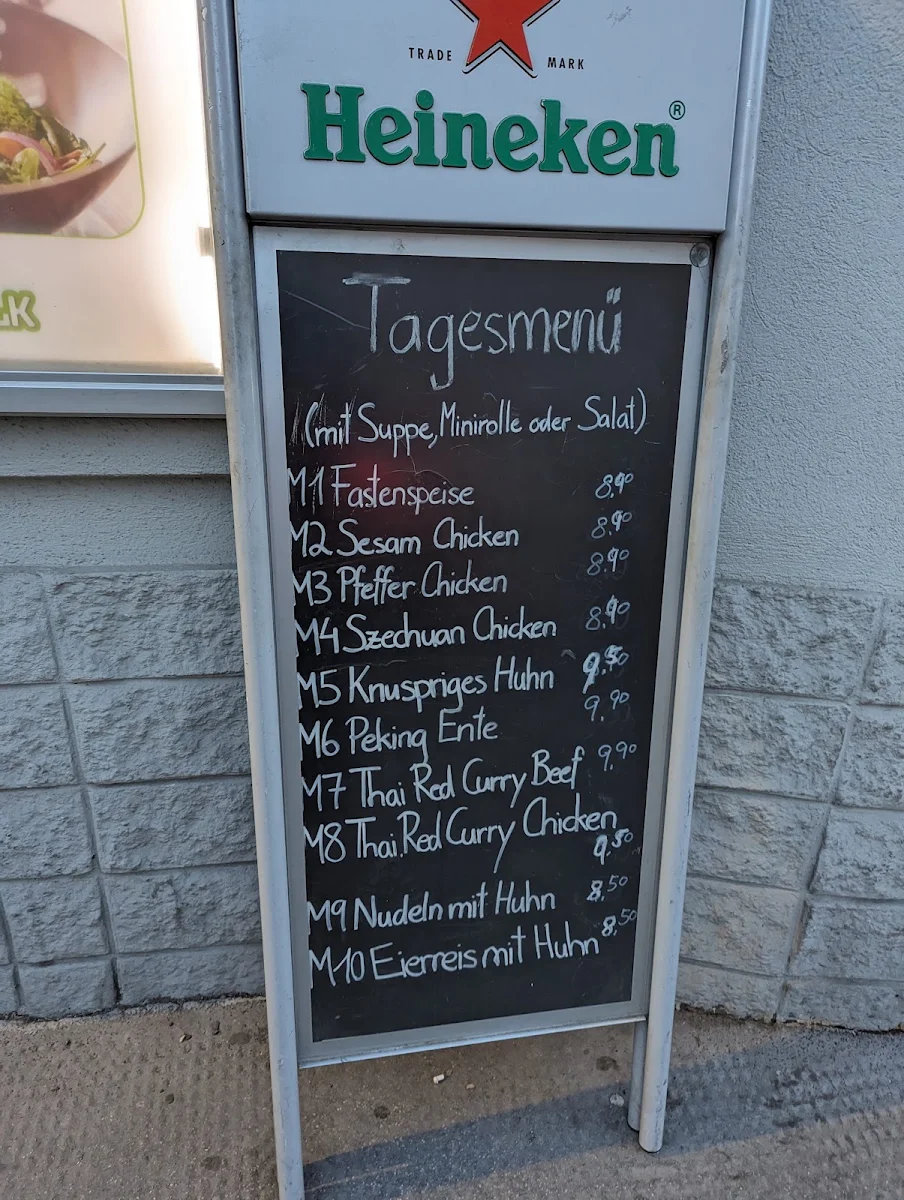 TRADE MARK
Heineken®
Tagesmenü
(mit Suppe, Minirolle oder Salat)
M1 Fastenspeise 8,90
M2 Sesam Chicken 8,90
M3 Pfeffer Chicken 8,90
M4 Szechuan Chicken 8,90
M5 Knuspriges Huhn 9,50
M6 Peking Ente 9,90
M7 Thai Red Curry Beef 9,90
M8 Thai Red Curry Chicken
9,50
M9 Nudeln mit Huhn 8,50
M10 Eierreis mit Huhn 8,50